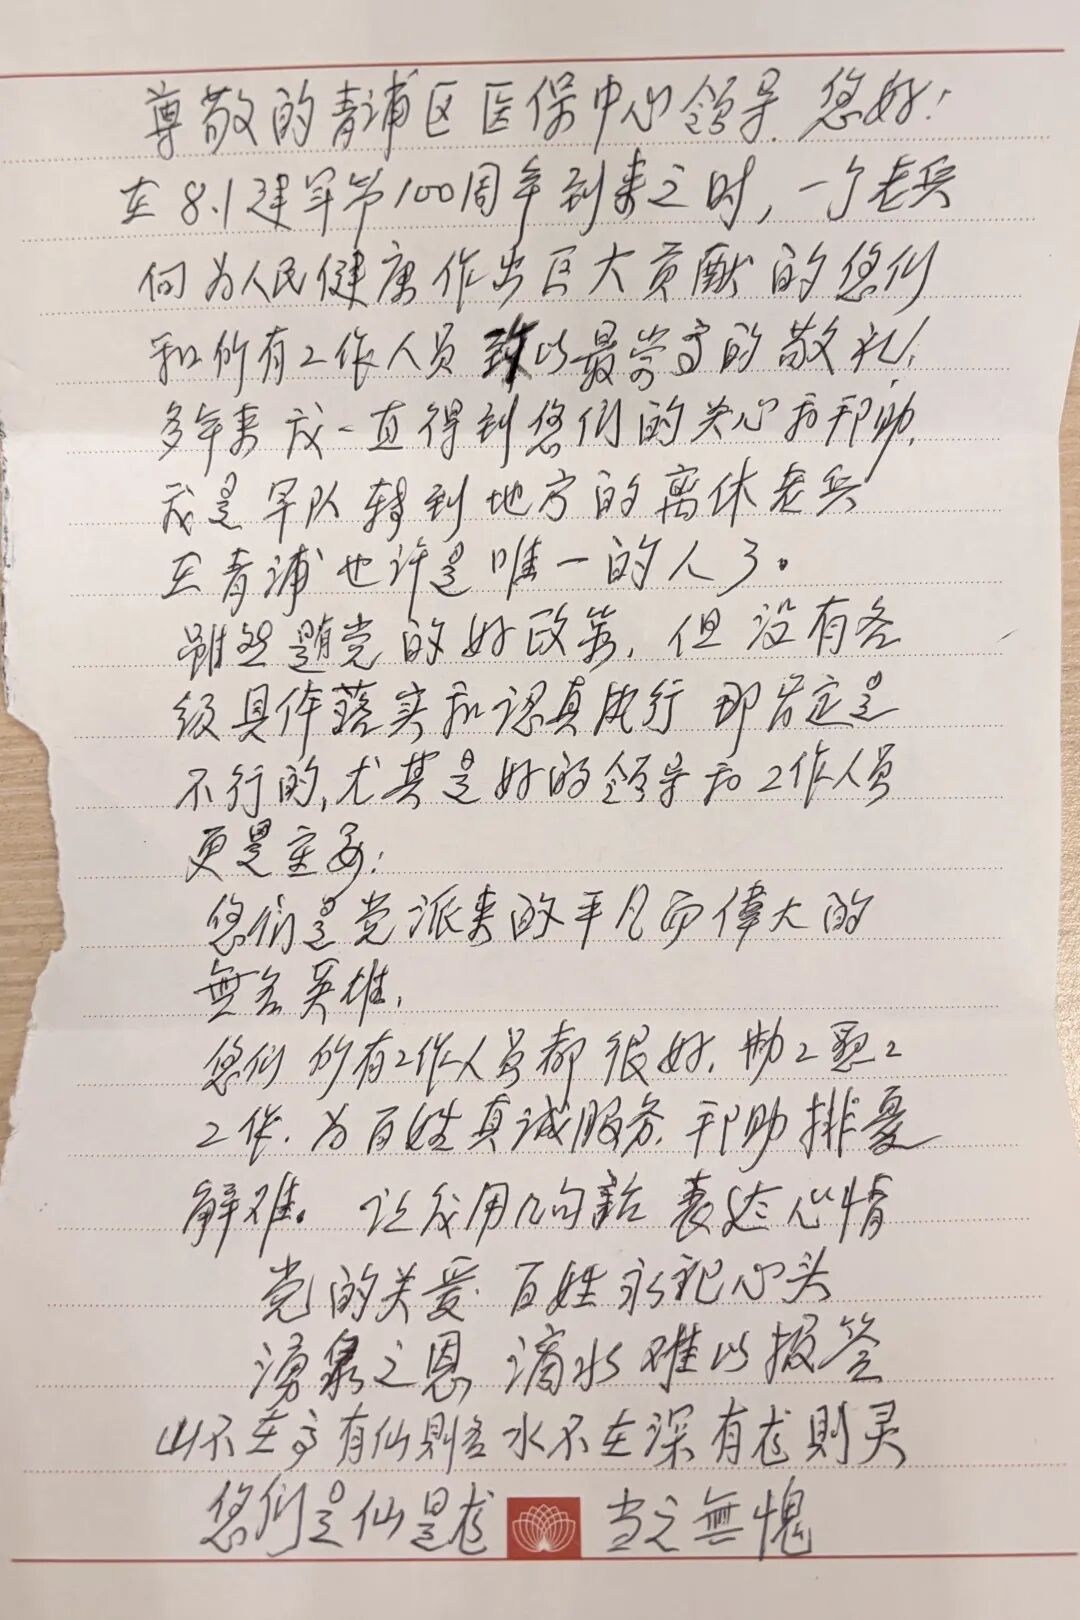 尊敬的青浦区医保中心领导.您好!
在8.1建军节100周年到来之时,一个老兵
向为人民健康作出巨大贡献的您们
和所有工作人员致以最崇高的敬礼!
多年来我一直得到您们的关心和帮助.
我是军队转到地方的离休老兵
在青浦也许是唯一的人了。
虽然是党的好政策,但没有各
级具体落实和认真执行那肯定是
不行的,尤其是好的领导和工作人员
更是重要;
您们是党派来的平凡而偉大的
無名英雄,
您们所有工作人员都很好.勤勤恳恳
工作.为百姓真诚服务.帮助排憂
解难。让我用几句話表达心情
党的关爱.百姓永记心头
湧泉之恩滴水难以报答
山不在高有仙則名水不在深有龙則灵
您们是仙是龙 当之無愧